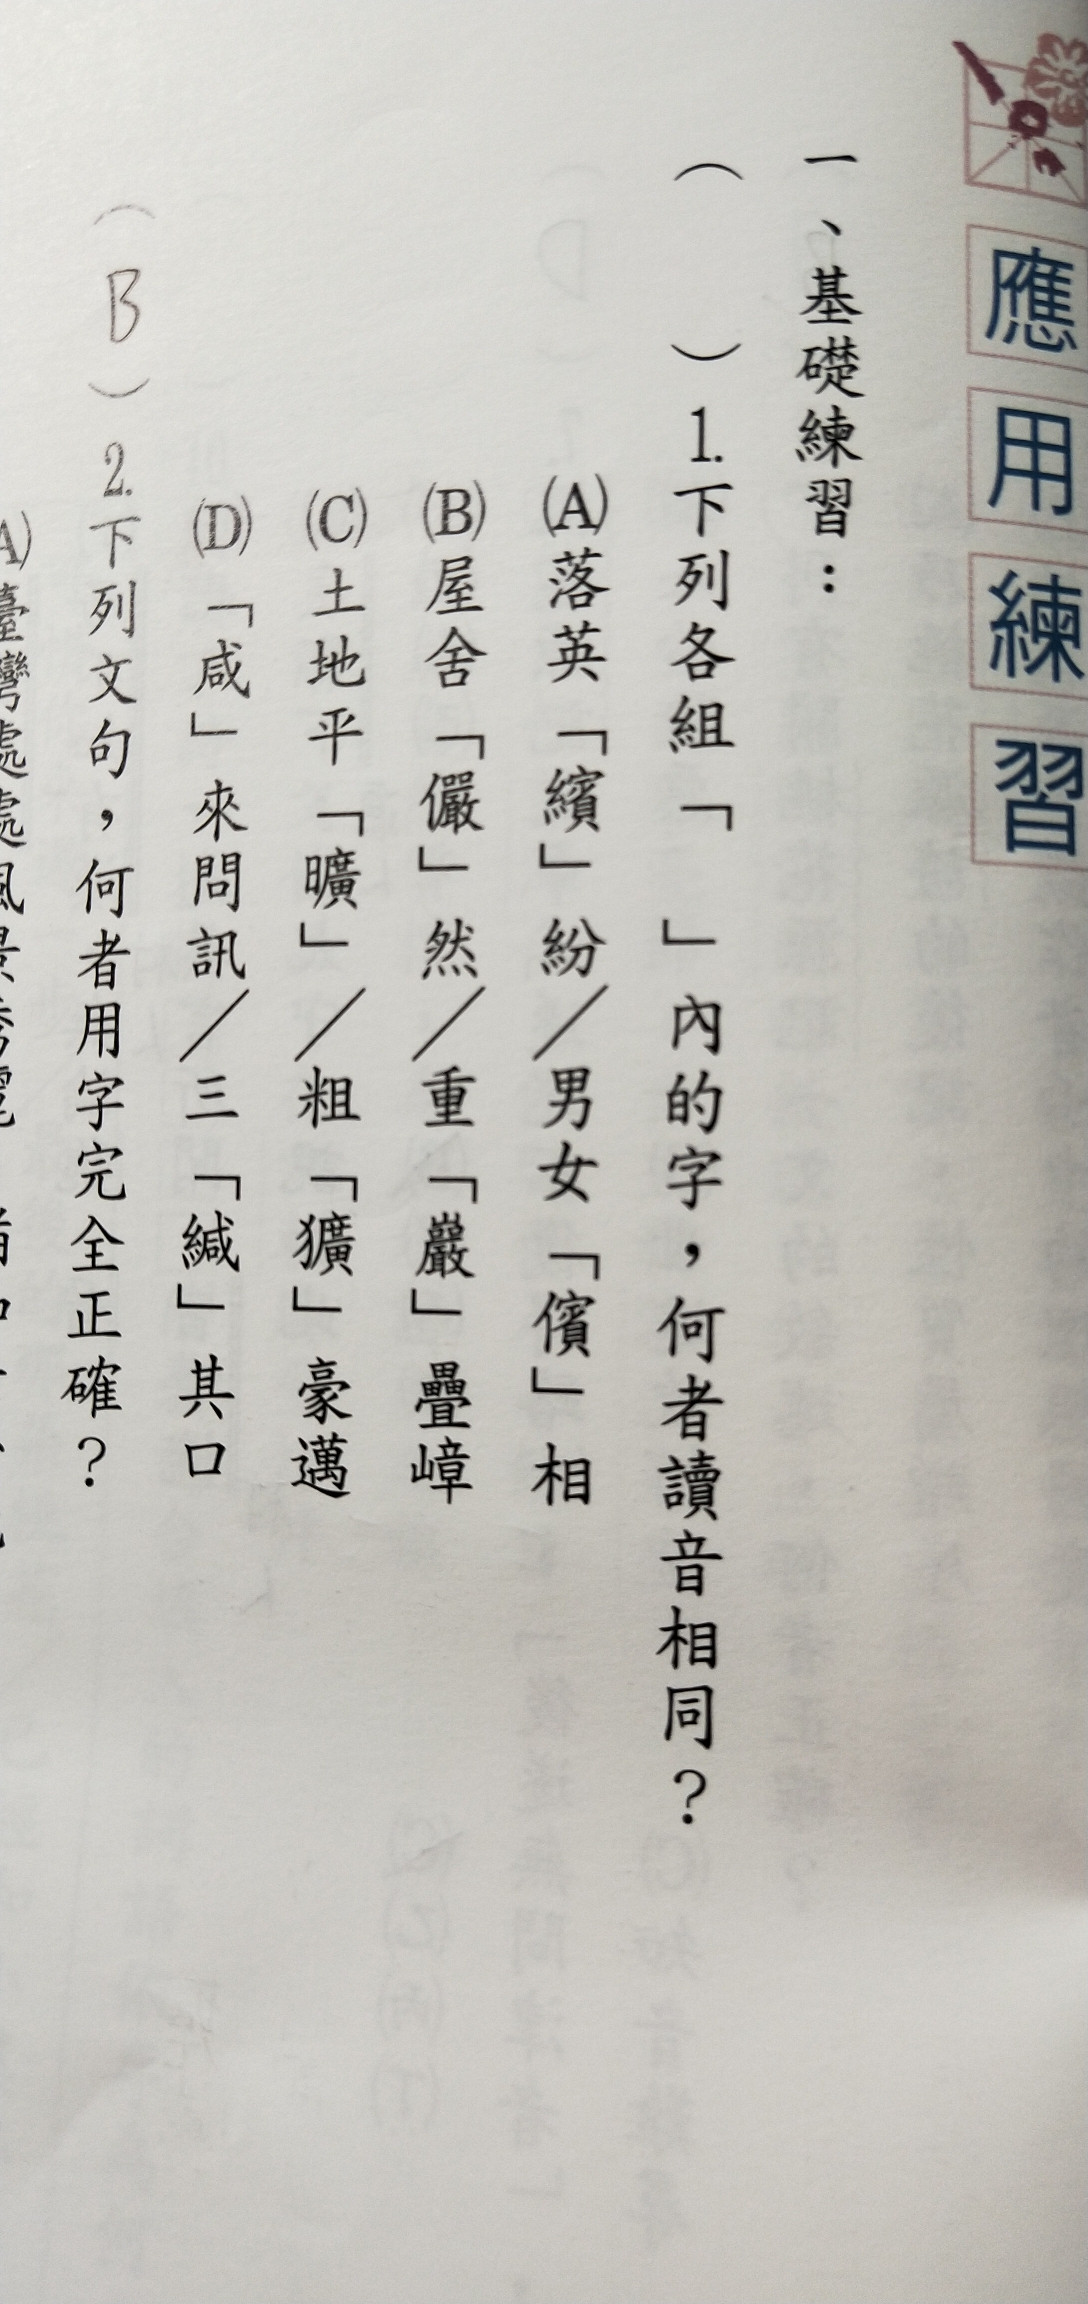 應用練習
一、基礎練習：
（　）1.下列各組「　」內的字，何者讀音相同？
(A)落英「繽」紛／男女「儐」相
(B)屋舍「儼」然／重「巖」疊嶂
(C)土地平「曠」／粗「獷」豪邁
(D)「咸」來問訊／三「緘」其口
（B）2.下列文句，何者用字完全正確？
(A)臺灣處處風景秀麗